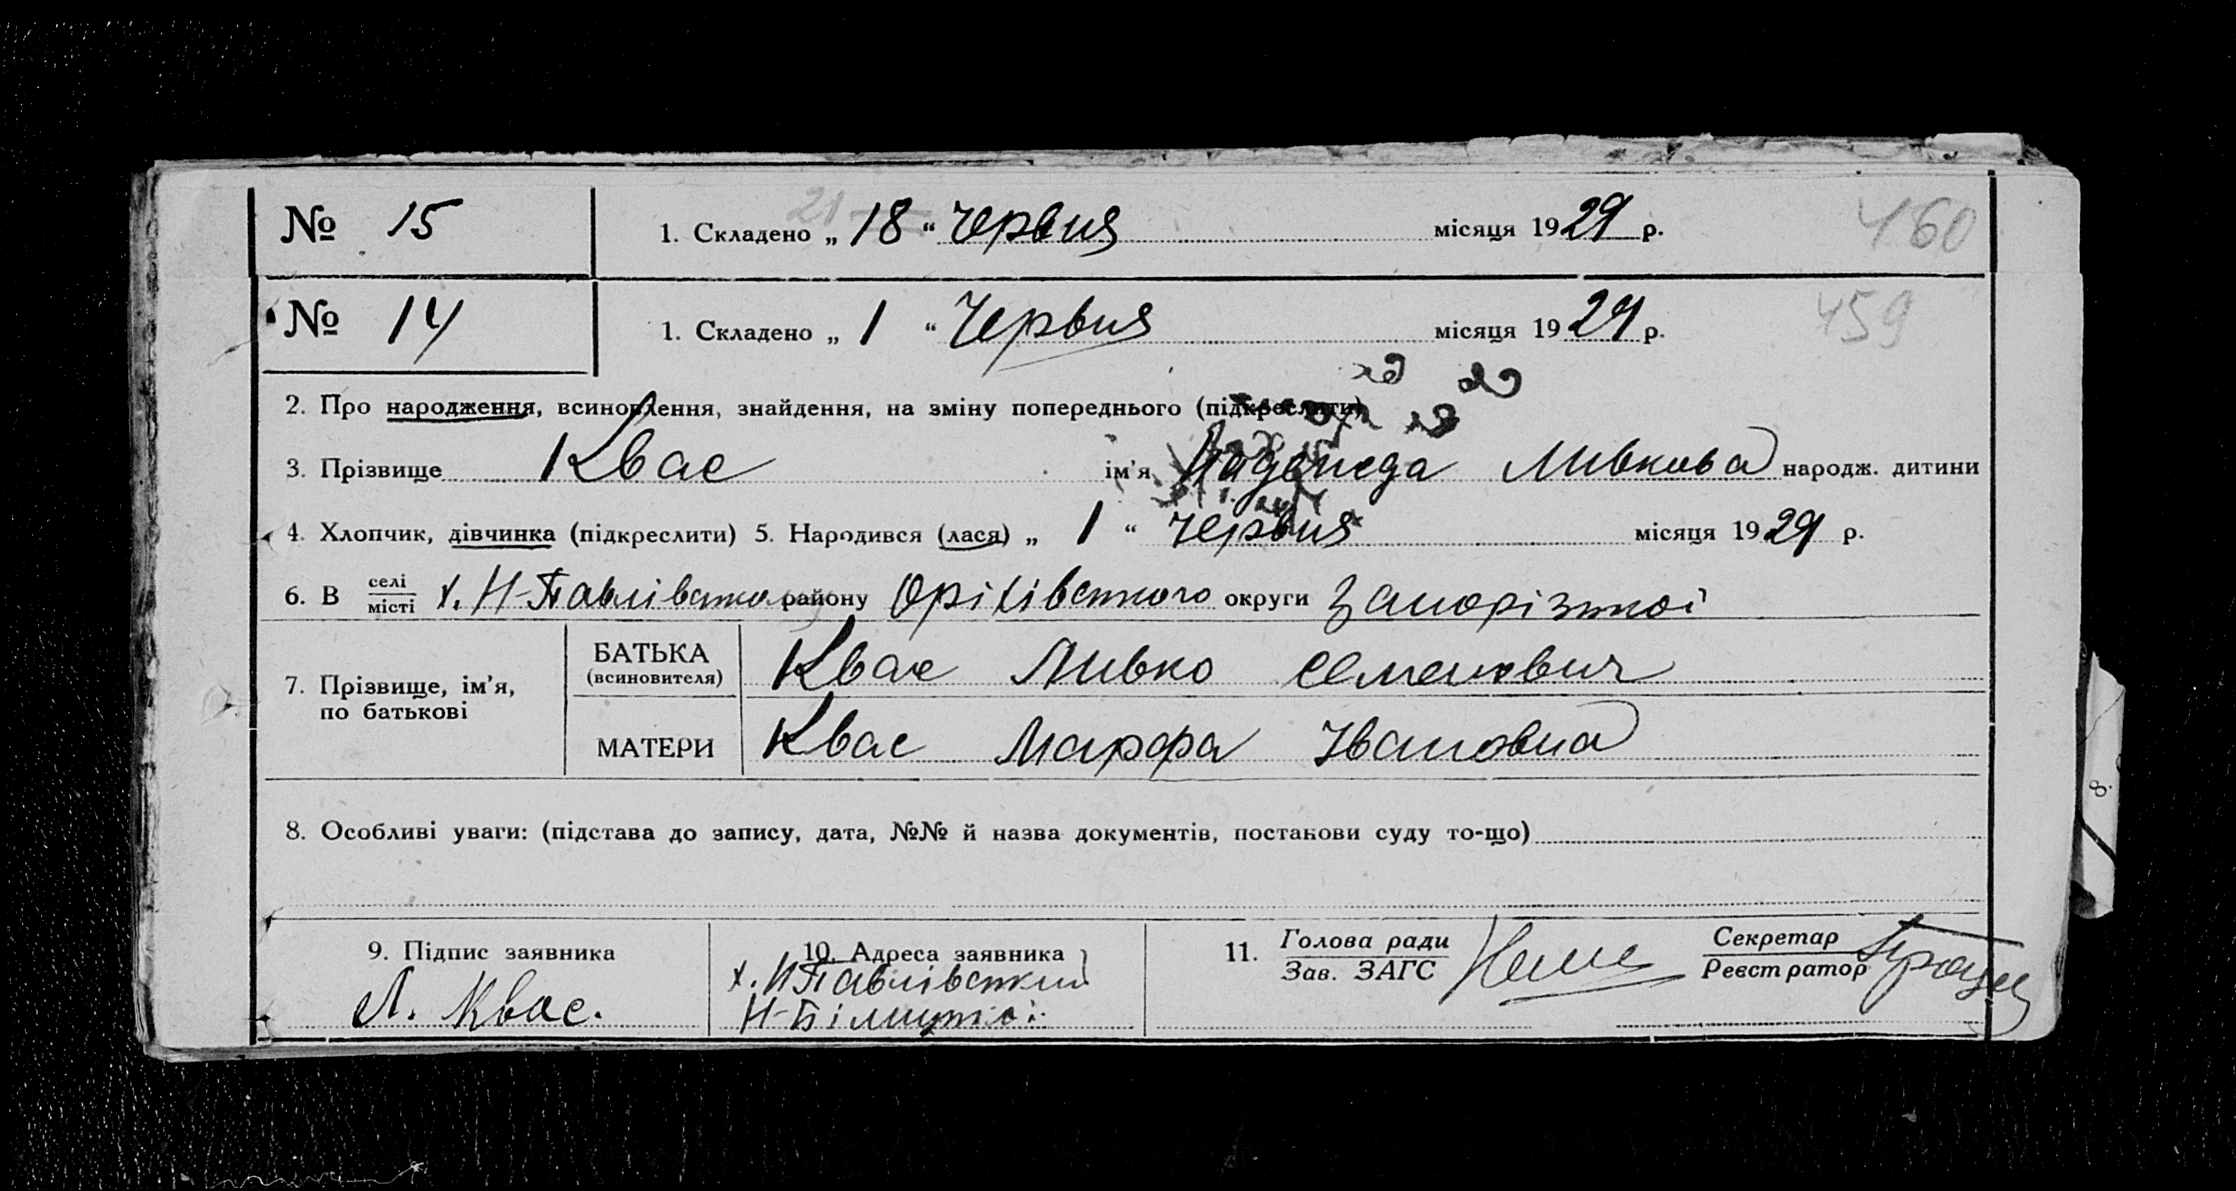 № 15 1. Складено „ 18 “ червня місяця 1929 р. 460
№ 14 1. Складено „ 1 “ Червня місяця 1929 р. 459
2. Про народження, всиновлення, знайдення, на зміну попереднього (підкреслити)
3. Прізвище Квас ім'я Надежда Ливкова народж. дитини
4. Хлопчик, дівчинка (підкреслити) 5. Народився (лася) „ 1 “ червня місяця 1929 р.
6. В селі/місті х. Н-Павлівському району Оріхівського округи Запорізької
7. Прізвище, ім'я, по батькові
БАТЬКА (всиновителя) Квас Ливко Семенович
МАТЕРИ Квас Марфа Івановна
8. Особливі уваги: (підстава до запису, дата, №№ й назва документів, постанови суду то-що)
9. Підпис заявника 10. Адреса заявника 11. Голова ради/Зав. ЗАГС Секретар/Реєстратор
Л. Квас. х. НПавлівський
8.